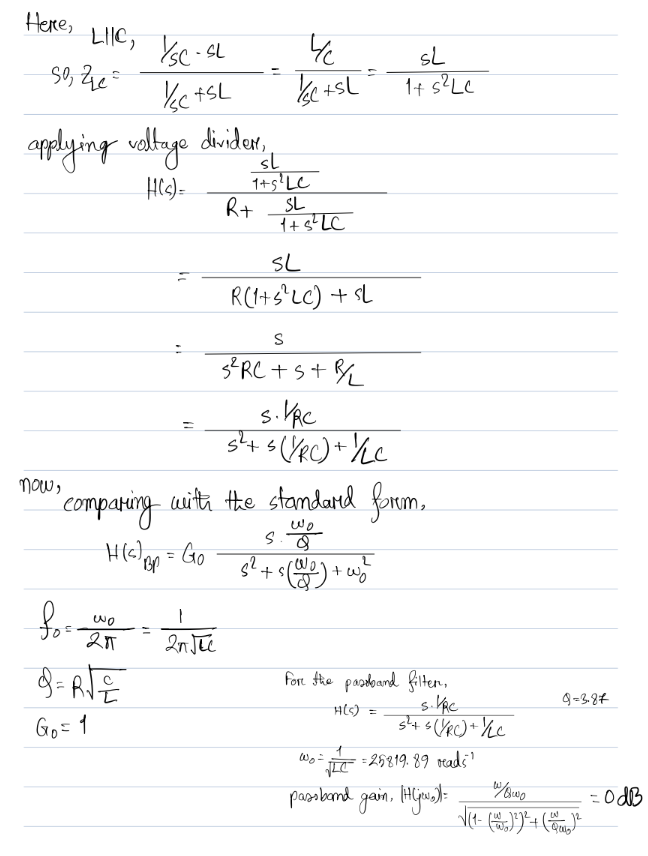 Here,
L||C,
so, Z_LC = (1/sC · sL) / (1/sC + sL) = (L/C) / (1/sC + sL) = sL / (1 + s²LC)
applying voltage divider,
H(s) = (sL / (1+s²LC)) / (R + sL / (1+s²LC))
= sL / (R(1+s²LC) + sL)
= s / (s²RC + s + R/L)
= (s · 1/RC) / (s² + s(1/RC) + 1/LC)
now,
comparing with the standard form,
H(s)_BP = G₀ (s · ω₀/Q) / (s² + s(ω₀/Q) + ω₀²)
f₀ = ω₀/2π = 1 / (2π√LC)
Q = R√(C/L)
G₀ = 1
For the passband filter,
H(s) = (s · 1/RC) / (s² + s(1/RC) + 1/LC)
Q = 3.87
ω₀ = 1/√LC = 25819.89 rads⁻¹
passband gain, |H(jω₀)| = (ω/Qω₀) / √((1 - (ω/ω₀)²)² + (ω/Qω₀)²) = 0 dB